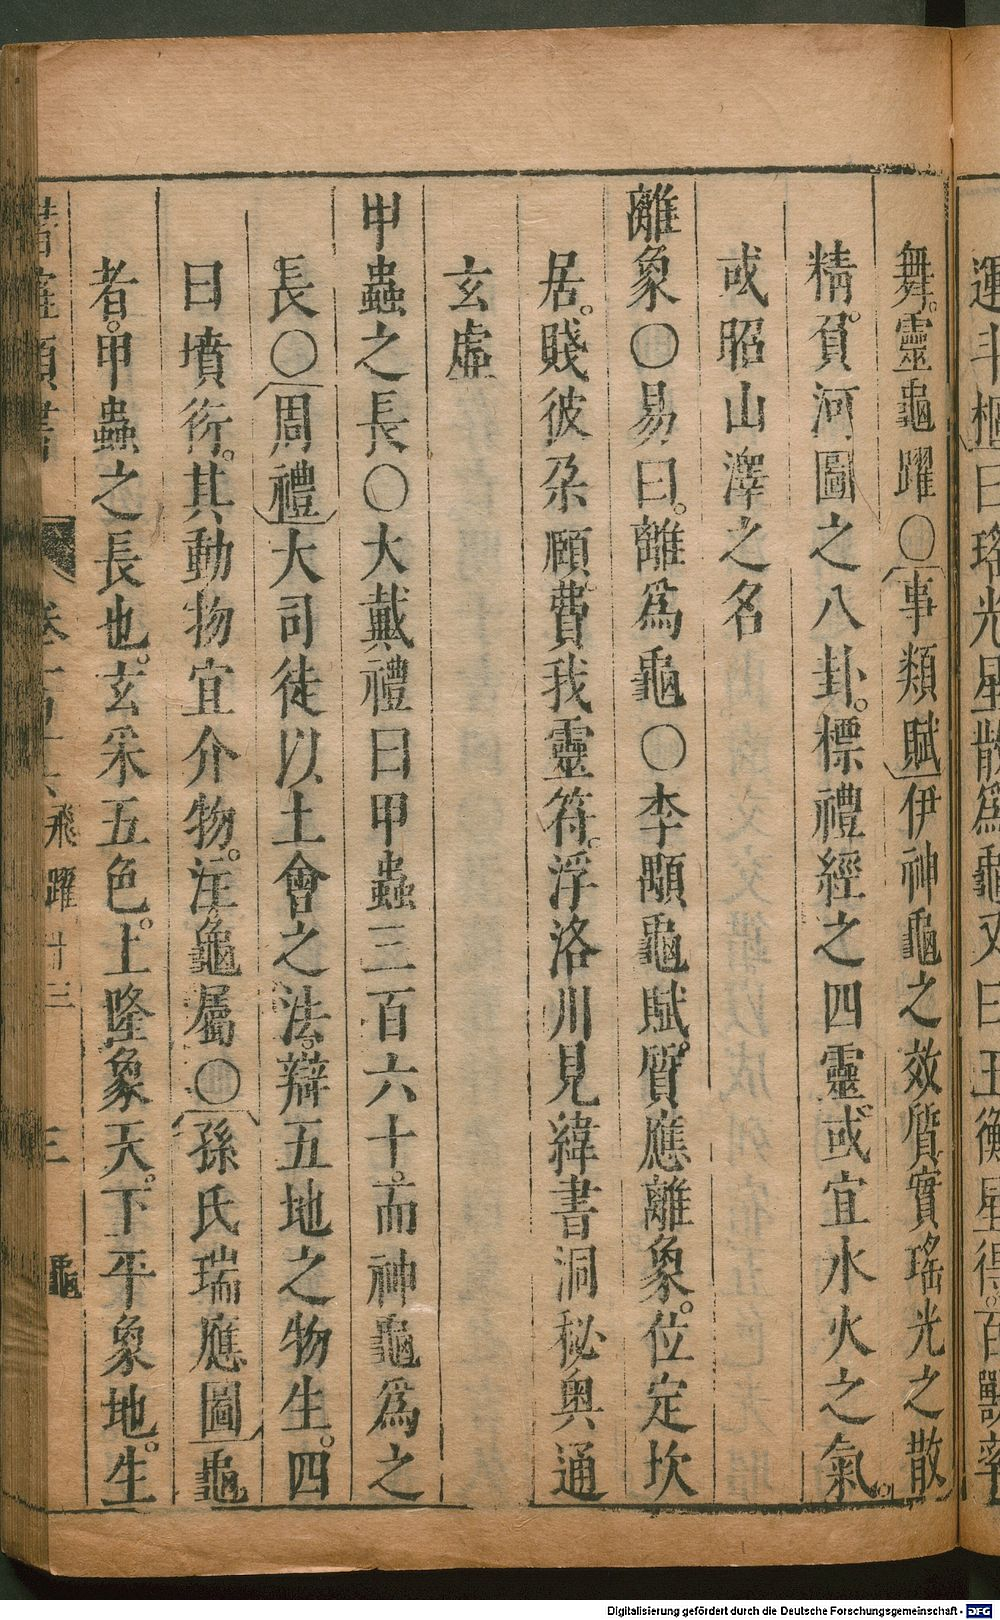 運斗樞曰瑤光星散爲龜又曰玉衡星得。百獸率
舞。靈龜躍〇事類賦伊神龜之效質實瑤光之散
精。負河圖之八卦。標禮經之四靈。或宜水火之氣。
或昭山澤之名
離象〇易曰。離爲龜〇李顒龜賦。質應離象。位定坎
居。賤彼朶頤。費我靈符。浮洛川見緯書洞秘奥通
玄虛
甲蟲之長〇大戴禮曰甲蟲三百六十。而神龜爲之
長〇周禮大司徒以土會之法。辯五地之物生。四
曰墳衍。其動物宜介物。注。龜屬〇孫氏瑞應圖龜
者。甲蟲之長也。玄采五色。上隆象天。下平象地。生
飛躍 廿三 三 龜
Digitalisierung gefördert durch die Deutsche Forschungsgemeinschaft - DFG